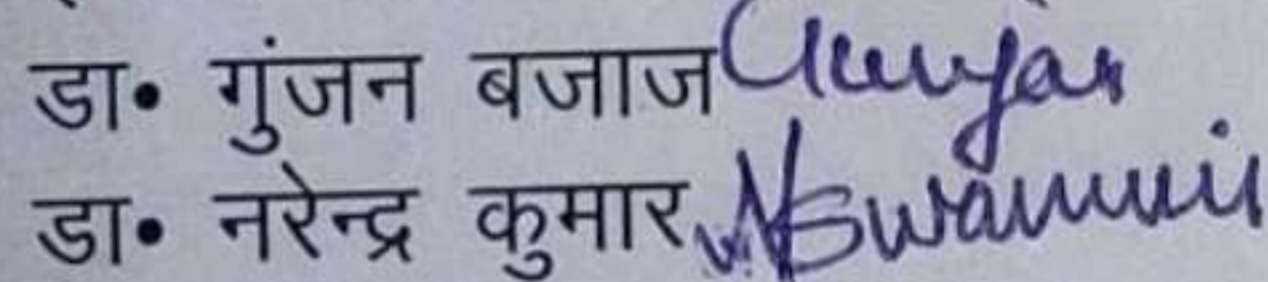 डा॰ गुंजन बजाज Gunjan
डा॰ नरेन्द्र कुमार NSwami